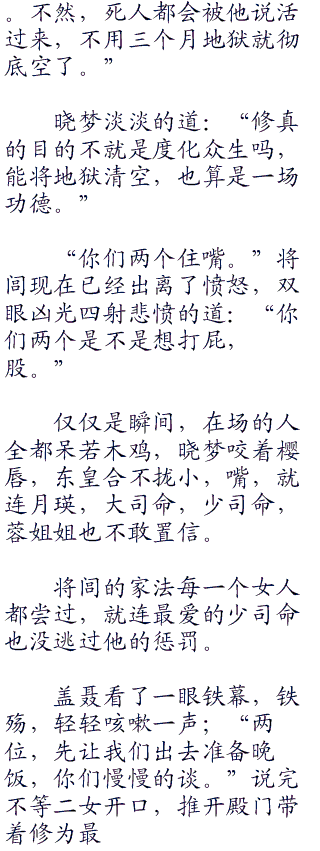 。不然，死人都会被他说活
过来，不用三个月地狱就彻
底空了。”
晓梦淡淡的道：“修真
的目的不就是度化众生吗，
能将地狱清空，也算是一场
功德。”
“你们两个住嘴。”将
闾现在已经出离了愤怒，双
眼凶光四射悲愤的道：“你
们两个是不是想打屁，
股。”
仅仅是瞬间，在场的人
全都呆若木鸡，晓梦咬着樱
唇，东皇合不拢小，嘴，就
连月瑛，大司命，少司命，
蓉姐姐也不敢置信。
将闾的家法每一个女人
都尝过，就连最爱的少司命
也没逃过他的惩罚。
盖聂看了一眼铁幕，铁
殇，轻轻咳嗽一声；“两
位，先让我们出去准备晚
饭，你们慢慢的谈。”说完
不等二女开口，推开殿门带
着修为最